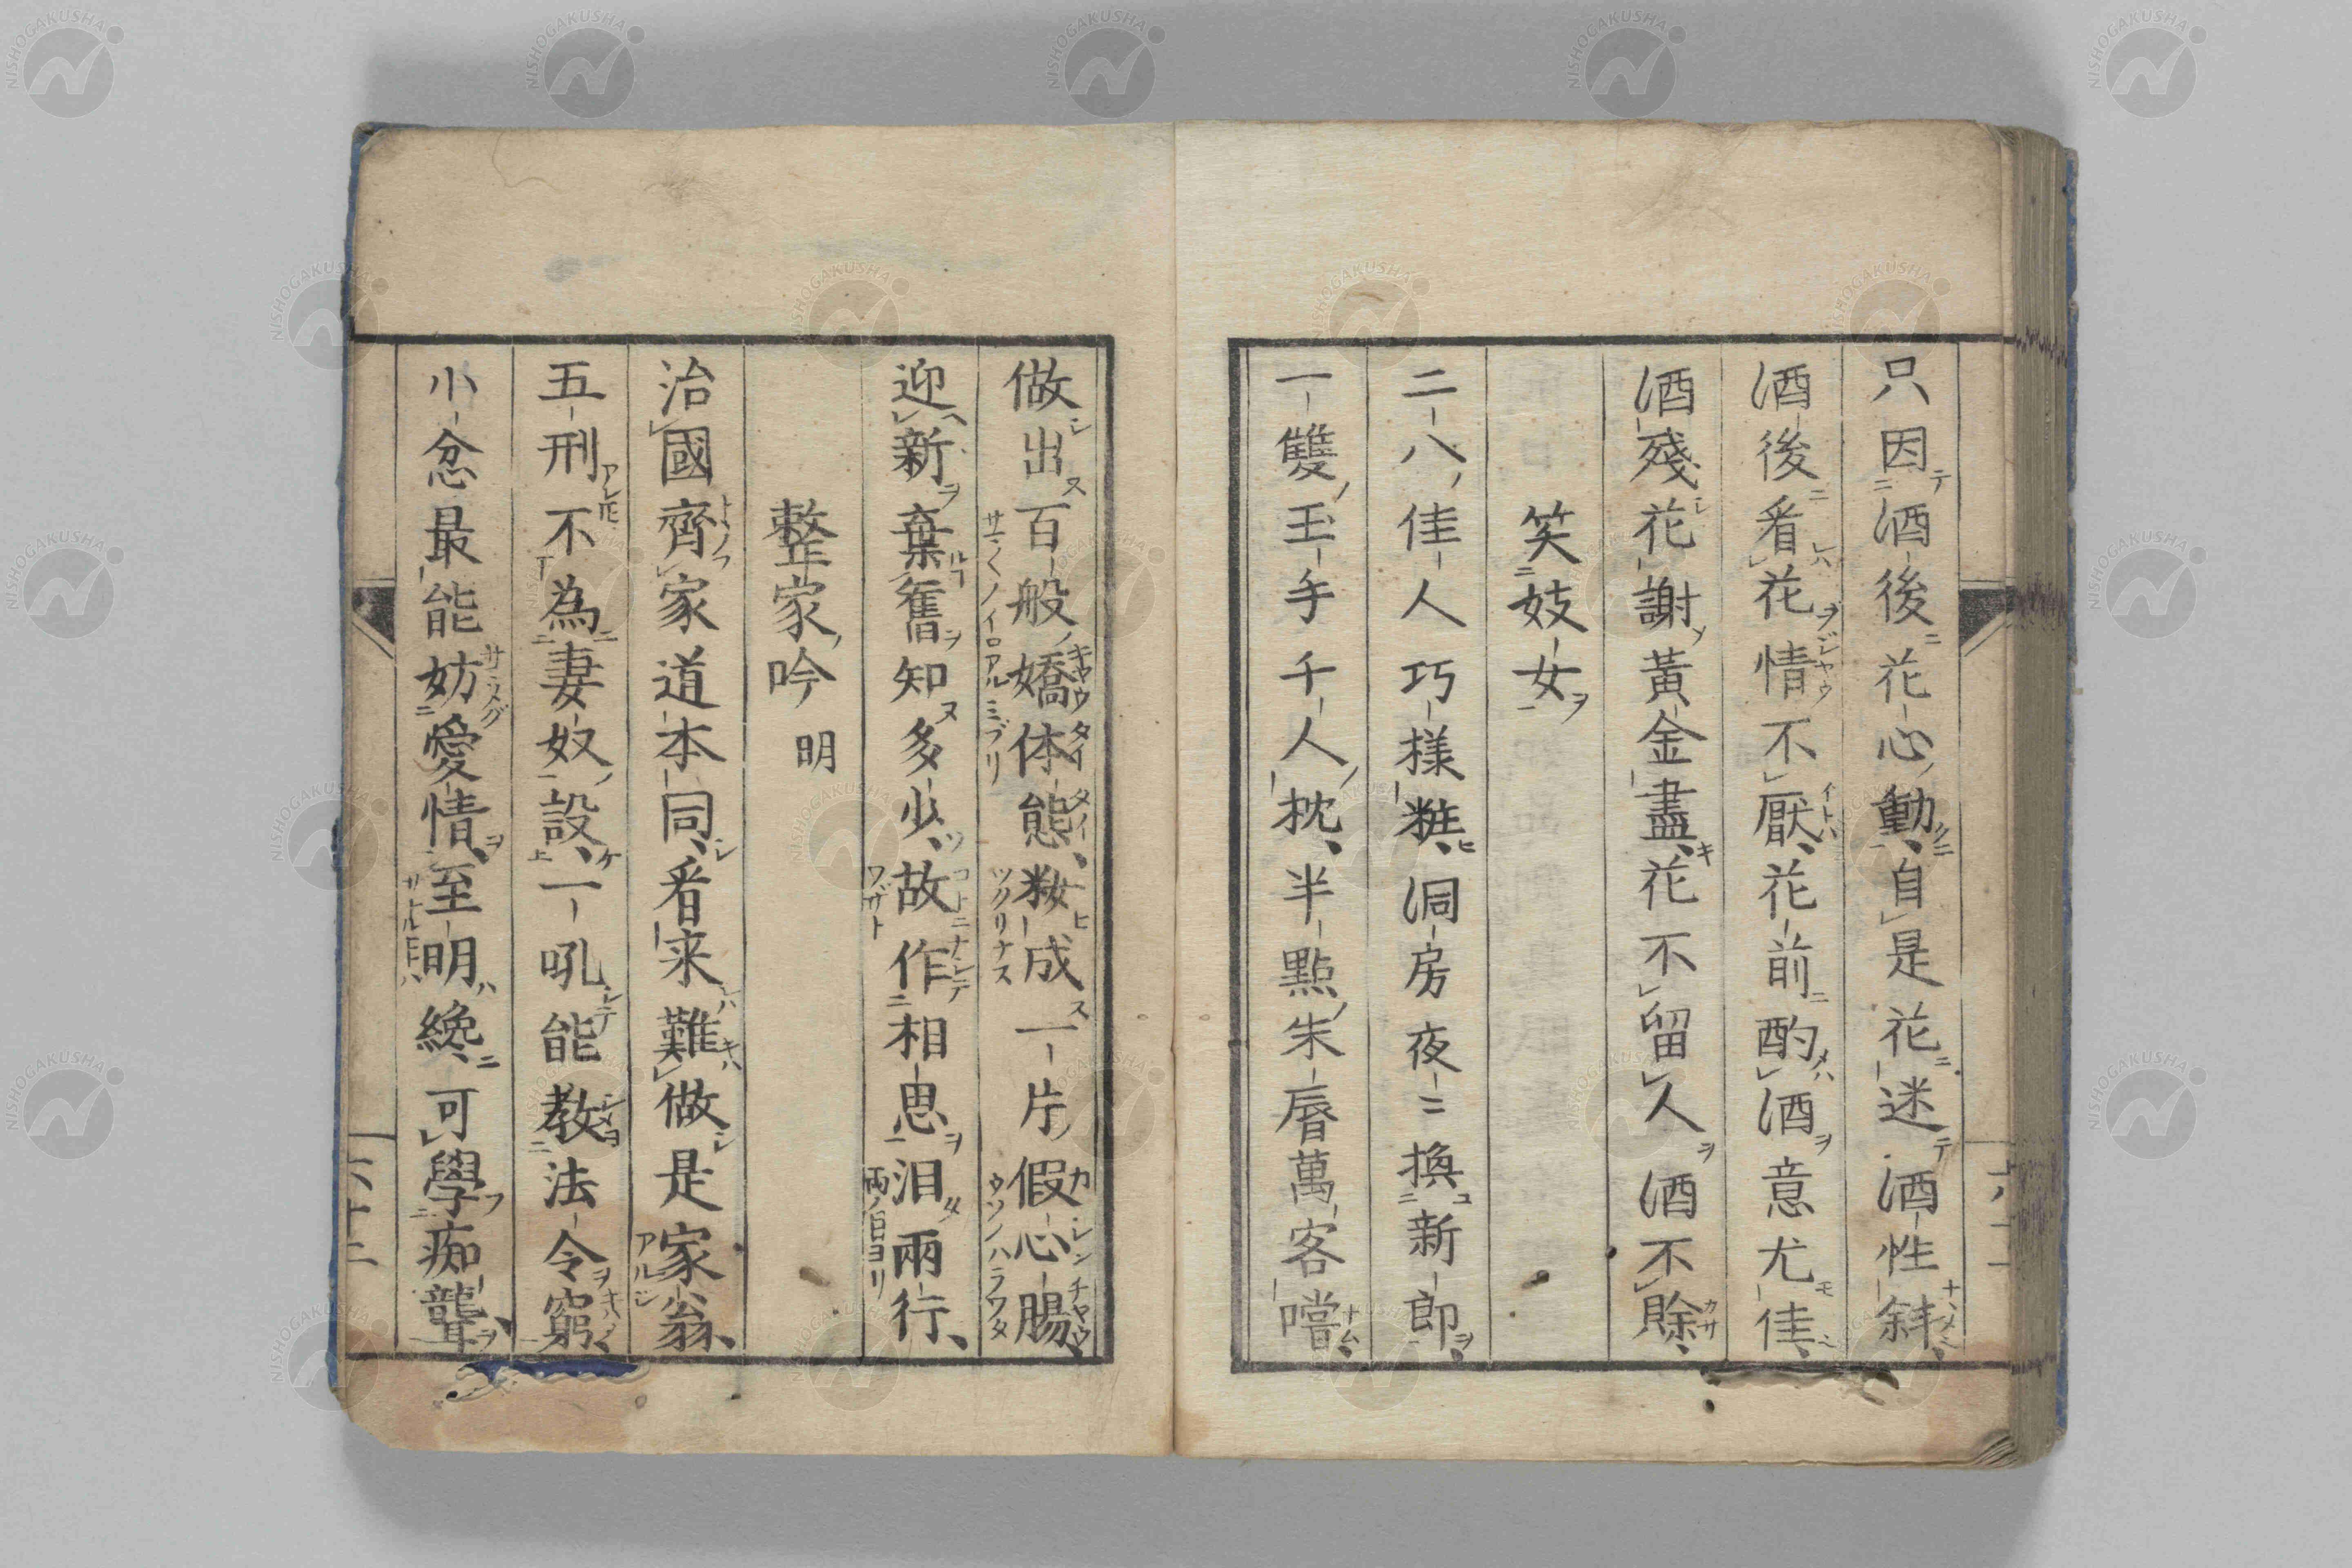 只因酒後花心動、自是花迷酒性斜、
酒後看花情不厭、花前酌酒意尤佳、
酒殘花謝黃金盡、花不留人酒不賖、
笑妓女
二八佳人巧樣粧、洞房夜〻換新郎、
一雙玉手千人枕、半點朱唇萬客嚐、
做出百般嬌体態、妝成一片假心腸、
迎新棄舊知多少、故作相思泪兩行、
整家吟 明
治國齊家道本同、看来難做是家翁、
五刑不為妻奴設、一吼能教法令窮、
小忿最能妨愛情、至明纔可學痴聾、
六十二
NISHOGAKUSHA